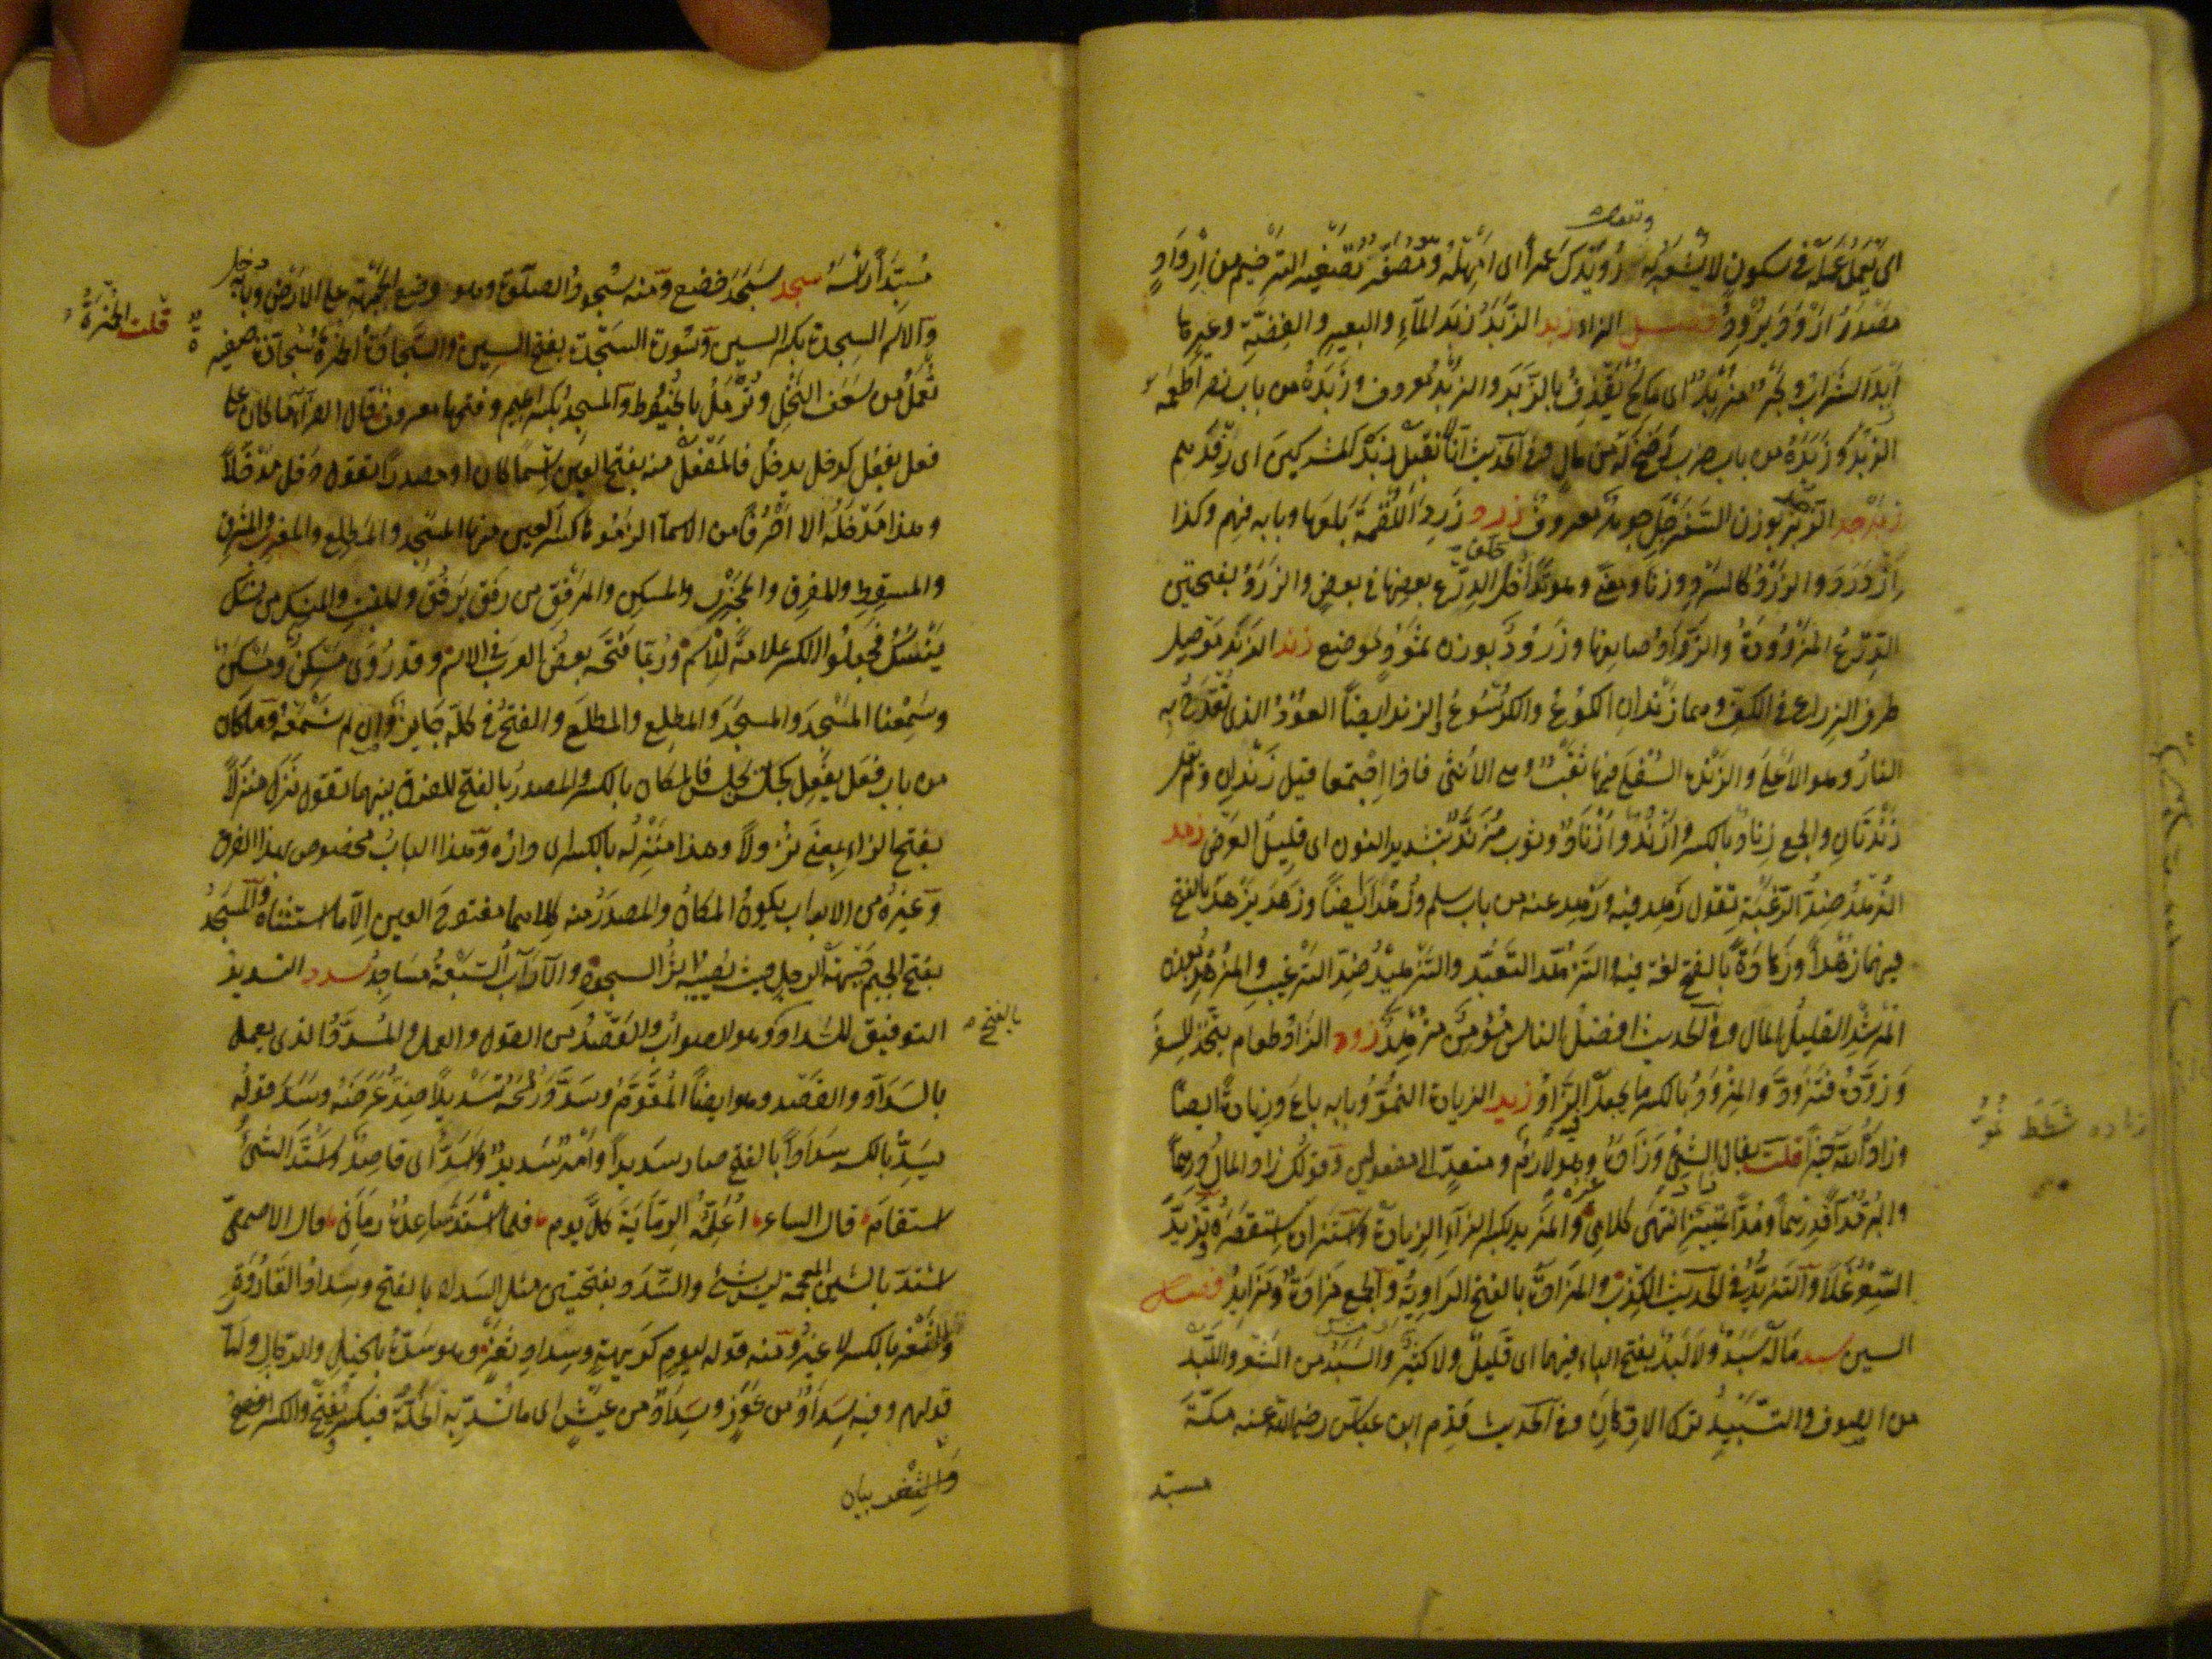 وتقول
أى يعمل عمله فى سكون لا يشعر به رُوَيْدَكَ عَمْراً أى امهله وهو مصغّر تصغير الترخيم من اِرْوَادٍ
مصدرُ أرْوَدَ يُرْوِدُ فصل الزاء زبد الزَّبَدُ زبد الماء والبعير والفضّة وغيرها
أزبد الشراب وبحرٌ مزبدٌ أى مائج يقذف بالزبد والزبد معروف وزبدهُ من باب نصر أطعمه
الزبد وزبده من باب ضرب رضخ له من مال وفى الحديث انّا لا نقبل زبد المشركين أى رفدهم
زبرجد الزبرجد بوزن السفرجل جوهر معروف زرد زرد اللقمة بلعها وبابه فهم وكذا
ازدرد والزرد كالسرد وزناً ومعنًى وهو تداخل حلق الدرع بعضها فى بعض والزرد بفتحتين
الدرع المزرودة والزرّاد صانعها وزرود بوزن ثمود موضع زند الزند موصل
طرف الذراع فى الكف وهما زندان الكوع والكرسوع والزند أيضاً العود الذى تقدح به
النار وهو الأعلى والزندة السفلى فيها ثقب وهى الأنثى فاذا اجتمعا قيل زندان ولم يقل
زندتان والجمع زناد بالكسر وأزند وأزناد وثوب مزنّد بتشديد النون أى قليل العرض زهد
الزهد ضد الرغبة تقول زهد فيه وزهد عنه من باب سلم وزهداً أيضاً وزهد يزهد بالفتح
فيهما زهداً وزهادةً بالفتح لغة فيه والتزهّد التعبّد والتزهيد ضد الترغيب والمزهد بوزن
المرشد القليل المال وفى الحديث أفضل الناس مؤمن مزهد زود الزاد طعام يتخذ للسفر
وزوّده فتزوّد والمزود بالكسر ما يجعل فيه الزاد زيد الزيادة النموّ وبابه باع وزيادة أيضاً
وزاده الله خيراً قلت يقال زاد الشئ وزاده غيره وهو لازم ومتعدّ الى مفعولين وقولك زاد المال درهماً
والبرّ مدّا فدرهماً ومدّا تمييز انتهى كلامى والمزيد بكسر الزاء الزيادة واستزاده استقصره وتزيّد
السعر غلا والتزيّد فى الحديث الكذب والمزادة بالفتح الراوية والجمع مزاد ومزايد فصل
السين سبد ماله سبد ولا لبد بفتح الباء فيهما أى قليل ولا كثير والسبد من الشعر واللبد
من الصوف والتسبيد ترك الادّهان وفى الحديث قدم ابن عباس رضى الله عنه مكّة
مسبّد
زيادة
مسبّداً رأسه سجد سجد خضع ومنه سجود الصلوة وهو وضع الجبهة على الأرض وبابه دخل
والاسم السجدة بكسر السين وسورة السجدة بفتح السين والسجّادة الخمرة قلت الخمرة سجّادة صغيرة
تعمل من سعف النخل وتزمّل بالخيوط والمسجد بكسر الجيم وفتحها معروف قال الفرآء ما كان على
فعل يفعل كدخل يدخل فالمفعل منه بفتح العين اسماً كان أو مصدراً تقول دخل مدخلاً
وهذا مدخله الا أحرفاً من الأسمآ الزموها كسر العين منها المسجد والمطلع والمغرب والمشرق
والمسقط والمفرق والمجزر والمسكن والمرفق من رفق يرفق والمنبت والمنسك من نسك
ينسك فجعلوا الكسر علامة للاسم وربما فتحه بعض العرب فى الاسم وقد رُوى مسكن ومسكن
وسمعنا المسجد والمسجد والمطلع والمطلع والفتح فى كله جايز وان لم نسمعه وما كان
من باب فعل يفعل كجلس يجلس فالمكان بالكسر والمصدر بالفتح للفرق بينهما تقول نزل منزلاً
بفتح الزاء بمعنى نزولاً وهذا منزله بالكسر أى داره وهذا الباب مخصوص بهذا الفرق
وغيره من الأبواب يكون المكان والمصدر منه كلاهما مفتوح العين الا ما استثناه والمسجد
بفتح الجيم جبهة الرجل حيث يصيبه أثر السجود والآراب السبعة مساجد سدد التسديد
التوفيق للسداد بالفتح وهو الصواب والقصد من القول والعمل والمسدّد الذى يعمل
بالسداد والقصد وهو أيضاً المقوّم وسدّد رمحه تسديداً ضد عرّضه وسدّ قوله
يسدّ بالكسر سداداً بالفتح صار سديداً وأمر سديد وأسدّ أى قاصد واستدّ الشئ
استقام قال الشاعر أعلّمه الرماية كلّ يوم فلما استدّ ساعده رمانى قال الأصمعى
اشتدّ بالشين المعجمة ليس بشئ والسدد بفتحتين مثل السداد بالفتح وسداد القارورة
والثغر بالكسر لا غير ومنه قوله ليوم كريهة وسداد ثغر وهو سدّه بالخيل والرجال وأما
قولهم وفيه سداد من عوز وسداد من عيش أى ما تسدّ به الخلّة فيكسر ويفتح والكسر أفصح